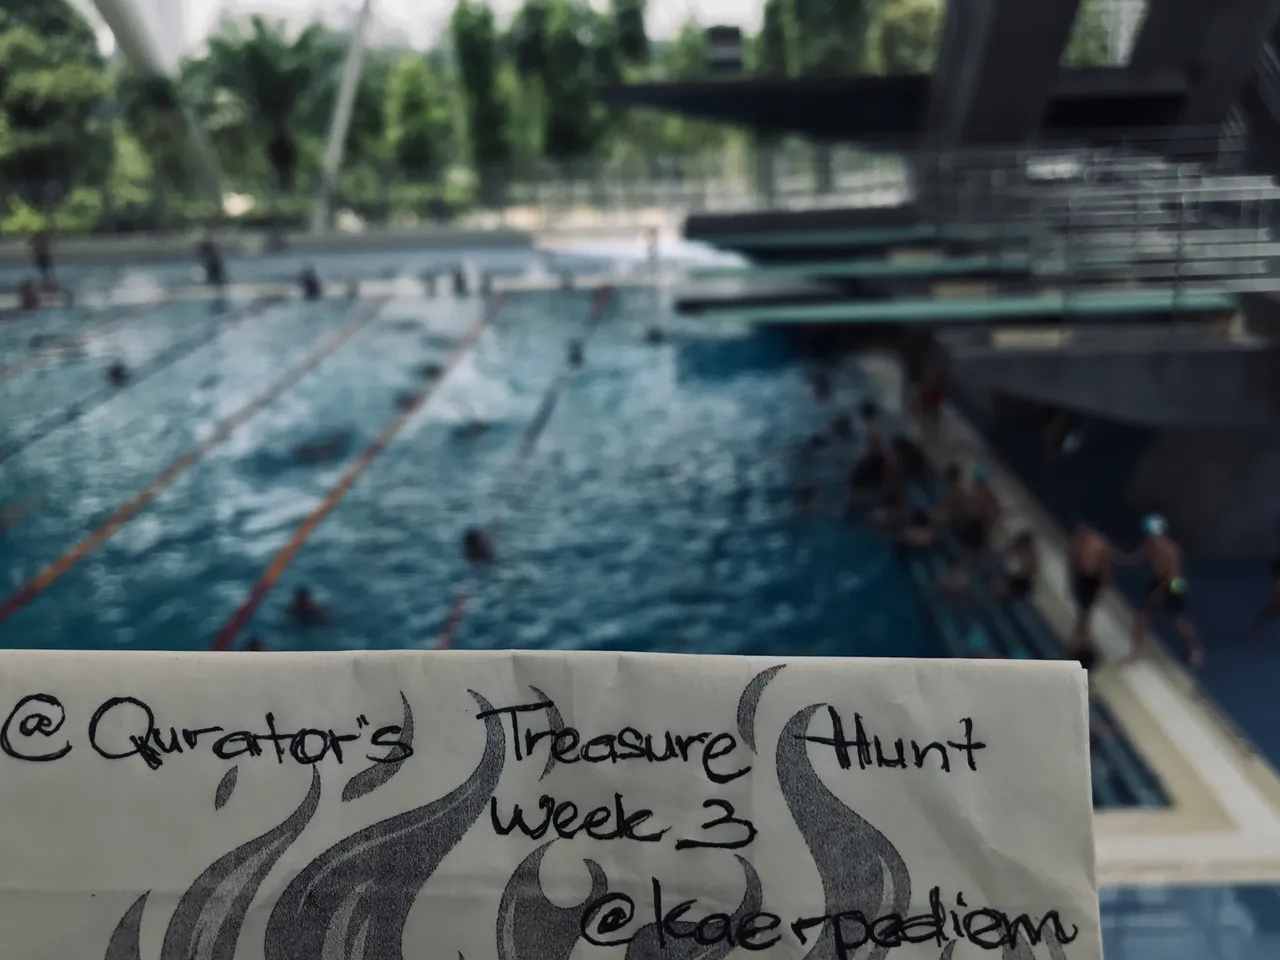 @Qurator's Treasure Hunt
Week 3
@kaerpediem